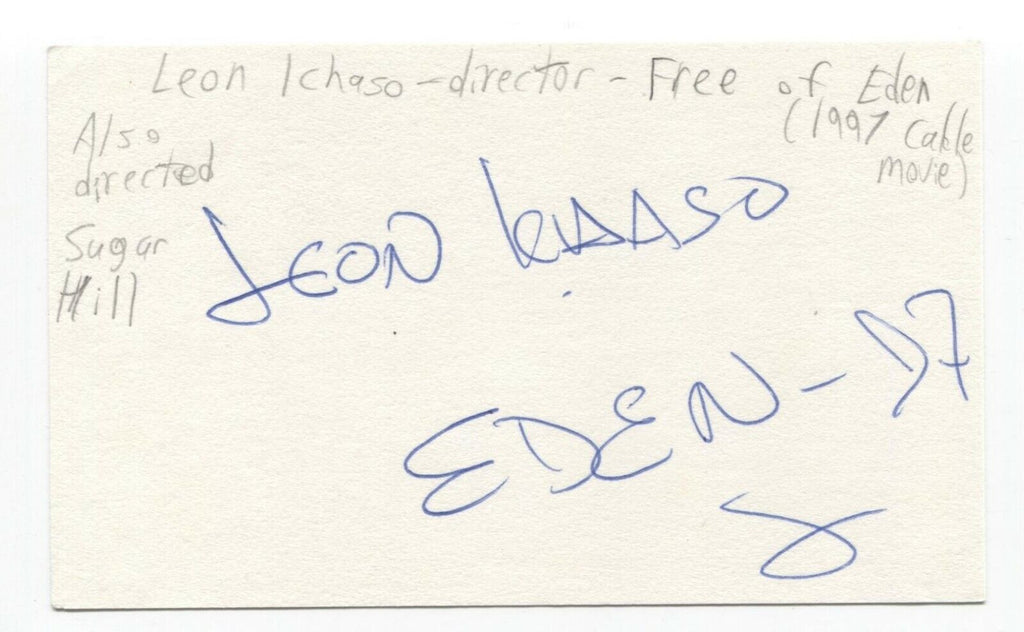 Leon Ichaso - director - Free of Eden
(1997 Cable
movie)
Also
directed
Sugar
Hill
LEON ICHASO
EDEN - 97